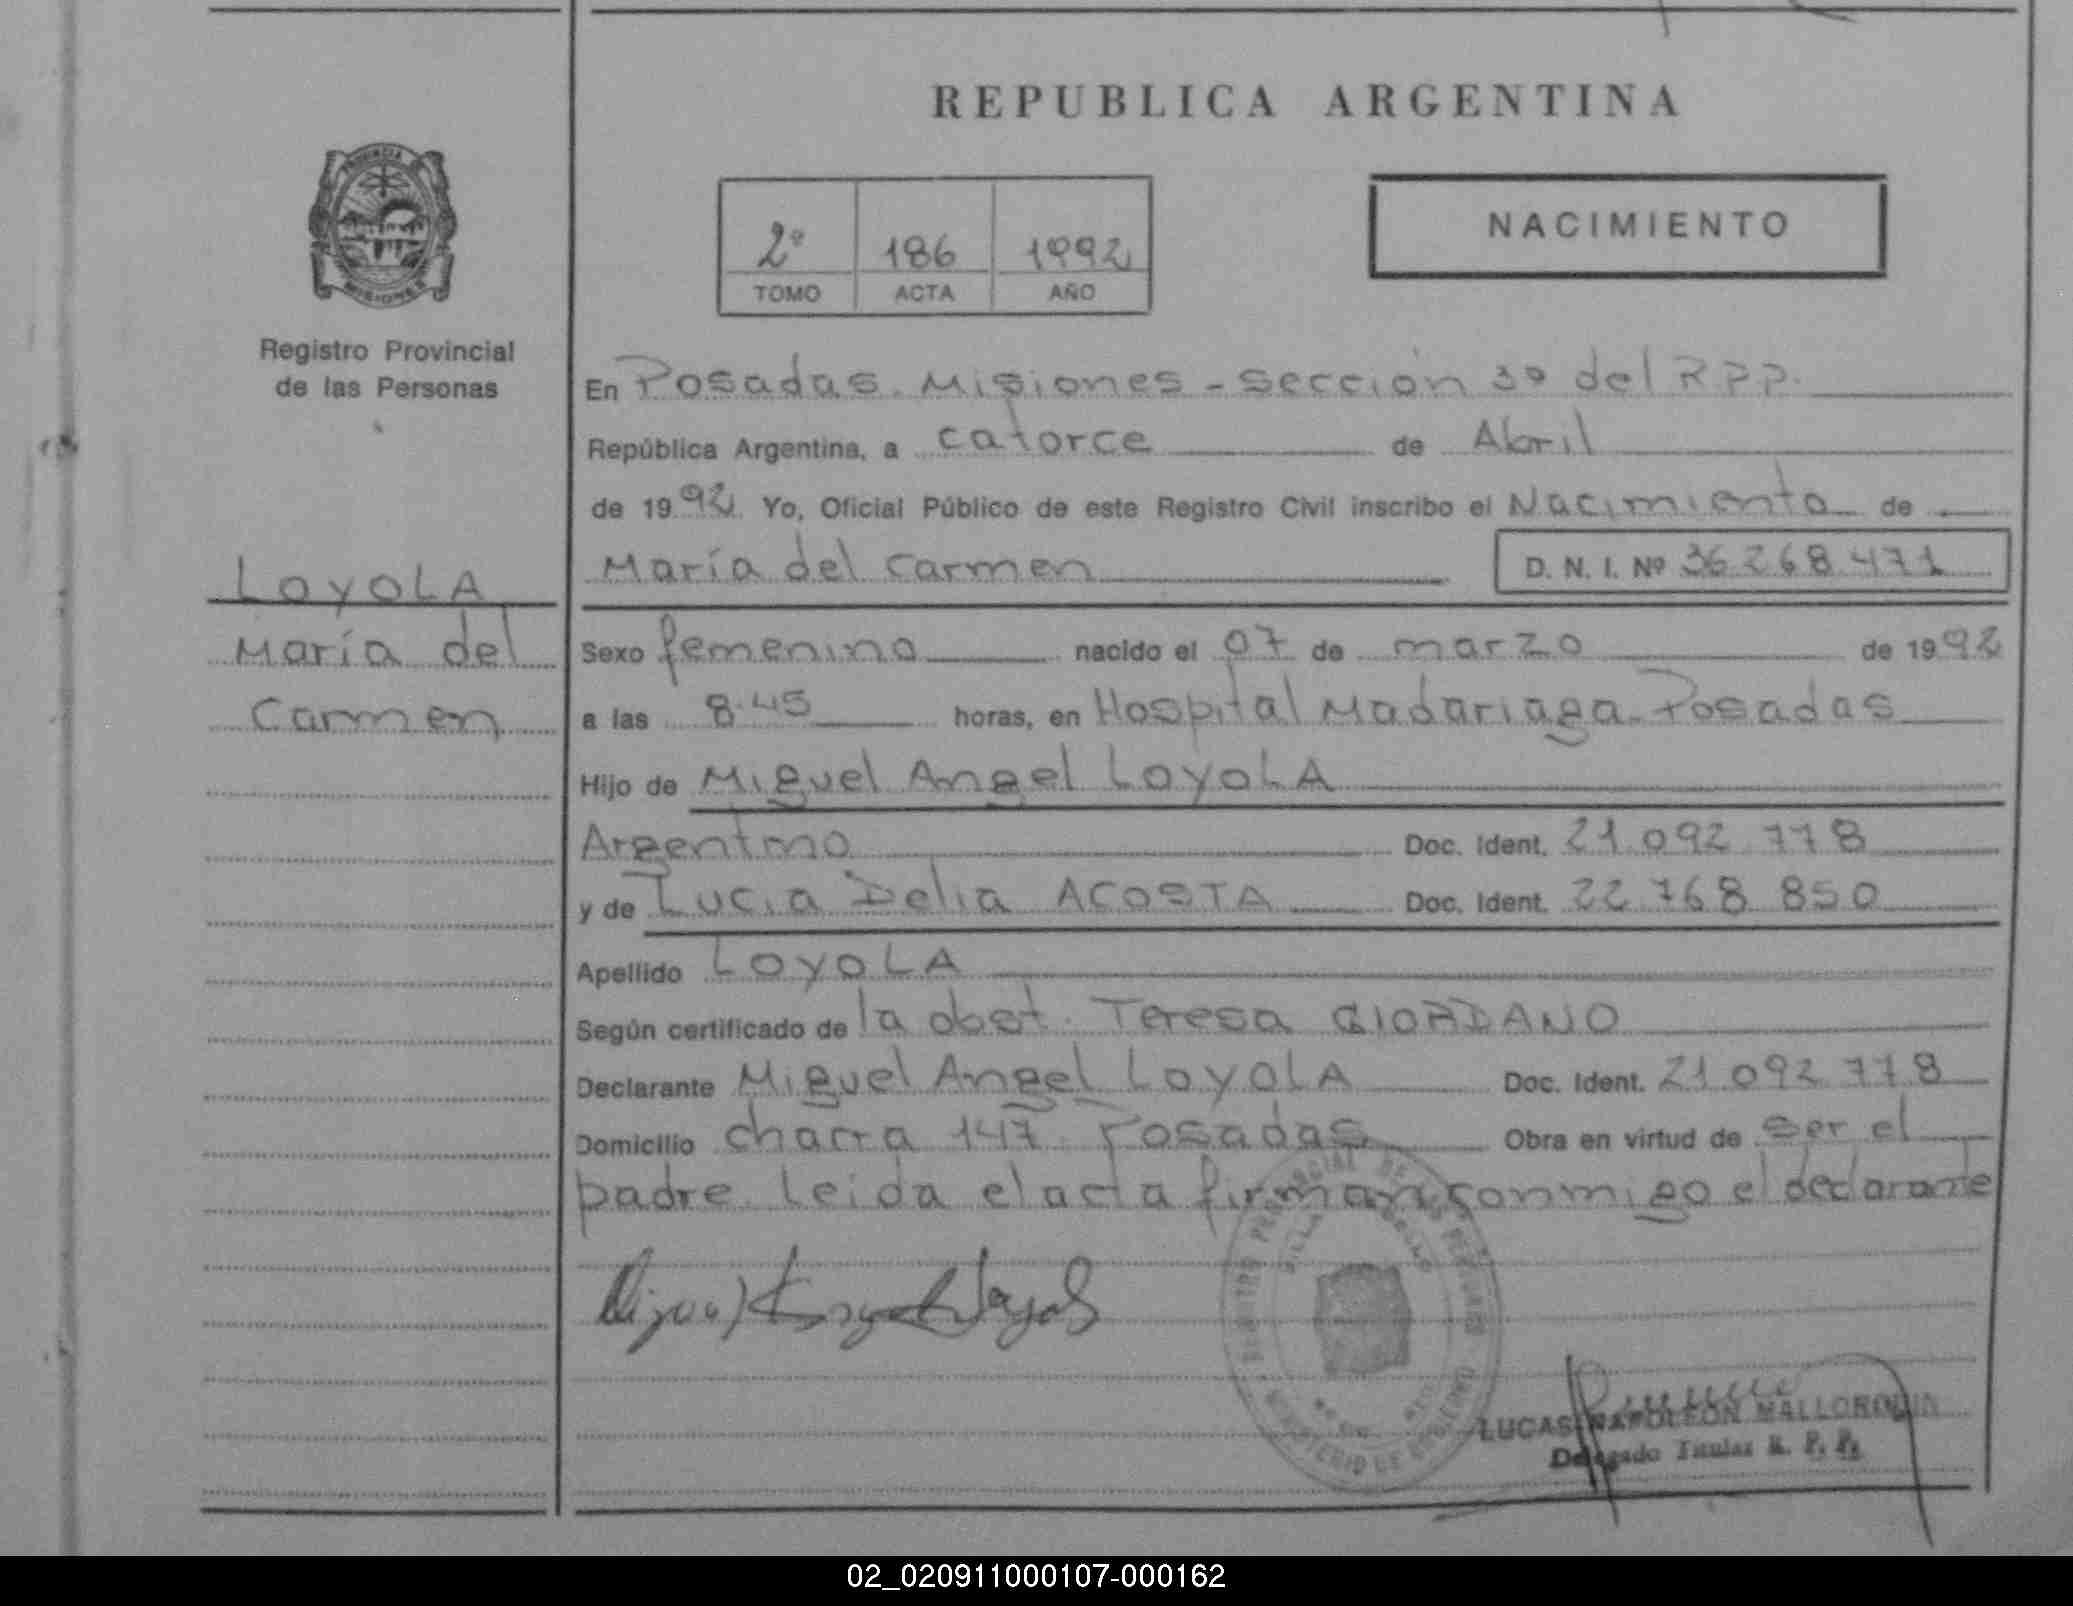 REPUBLICA ARGENTINA
PROVINCIA
MISIONES
2º 186 1992
TOMO ACTA AÑO
NACIMIENTO
Registro Provincial
de las Personas
En Posadas. Misiones - sección 3º del R.P.P.
República Argentina, a catorce de Abril
de 1992 Yo, Oficial Público de este Registro Civil inscribo el Nacimiento de
María del Carmen D. N. I. Nº 36.268.471
LOYOLA
María del
Carmen
Sexo femenino nacido el 07 de marzo de 1992
a las 8.45 horas, en Hospital Madariaga - Posadas
Hijo de Miguel Angel LOYOLA
Argentino Doc. Ident. 21.092.778
y de Lucia Delia ACOSTA Doc. Ident. 22.768.850
Apellido LOYOLA
Según certificado de la obst. Teresa GIORDANO
Declarante Miguel Angel LOYOLA Doc. Ident. 21.092.778
Domicilio chacra 147. Posadas Obra en virtud de ser el
padre. Leida el acta firman conmigo el declarante
REGISTRO PROVINCIAL DE LAS PERSONAS
MINISTERIO DE GOBIERNO
LUCAS NAPOLEON MALLORQUIN
Delegado Titular R. P. P.
02_020911000107-000162